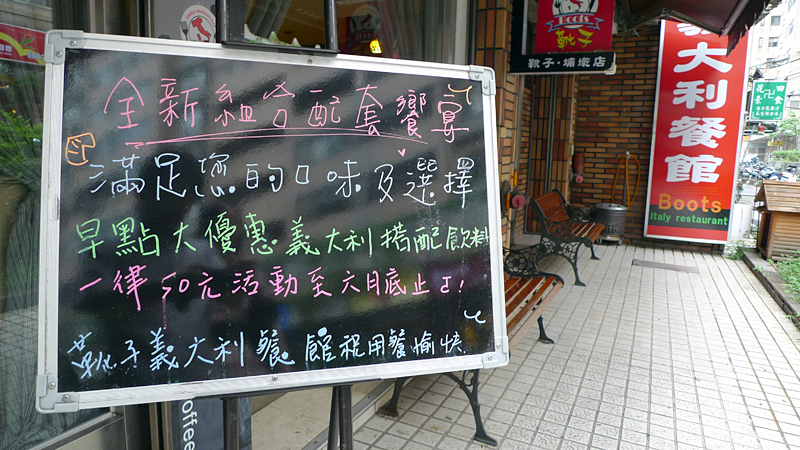 全新組合配套饗宴
印
滿足您的口味及選擇
早點大優惠義大利搭配飲料
一律50元活動至六月底止!
靴子義大利餐館祝用餐愉快
Boots
靴子
靴子·埔墘店
義大利餐館
Boots
Italy restaurant
素食
offee